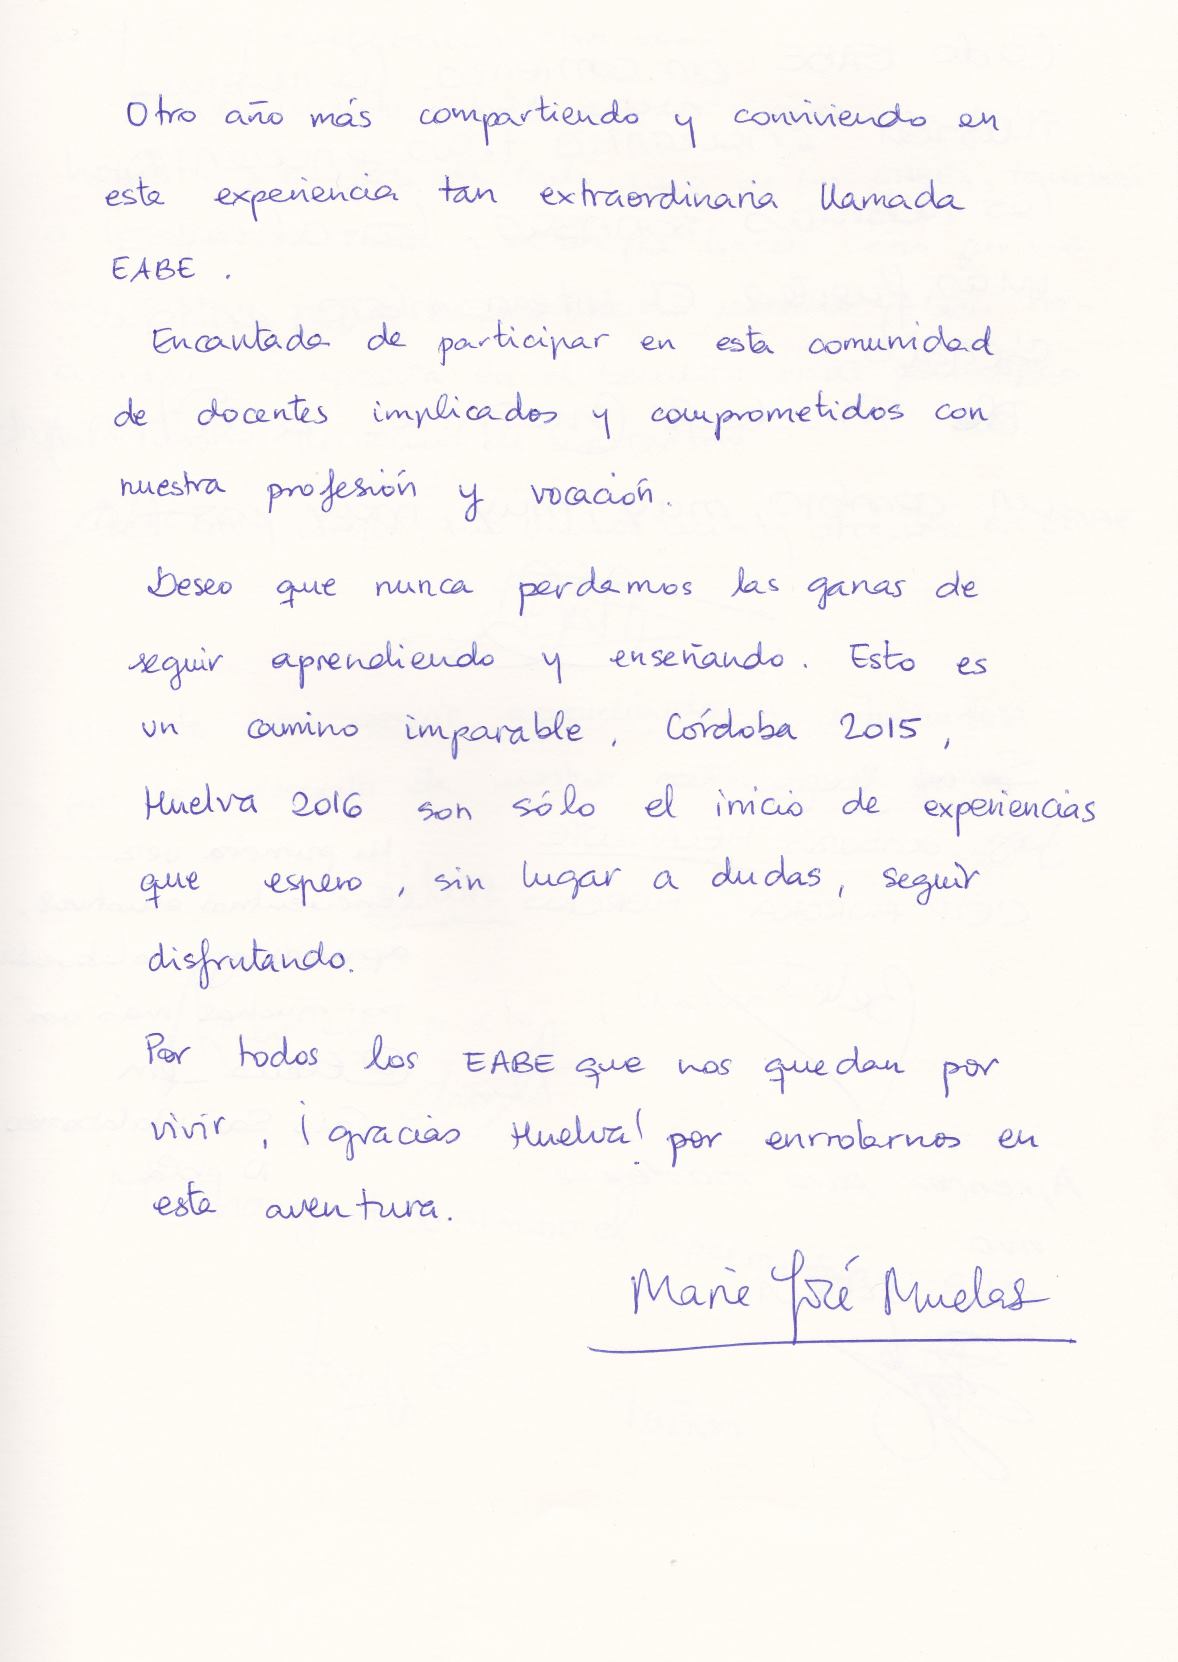 Otro año más compartiendo y conviviendo en
esta experiencia tan extraordinaria llamada
EABE .
Encantada de participar en esta comunidad
de docentes implicados y comprometidos con
nuestra profesión y vocación.
Deseo que nunca perdamos las ganas de
seguir aprendiendo y enseñando. Esto es
un camino imparable , Córdoba 2015 ,
Huelva 2016 son sólo el inicio de experiencias
que espero , sin lugar a dudas, seguir
disfrutando.
Por todos los EABE que nos quedan por
vivir , ¡gracias Huelva! por enrrolarnos en
esta aventura.
María José Muelas